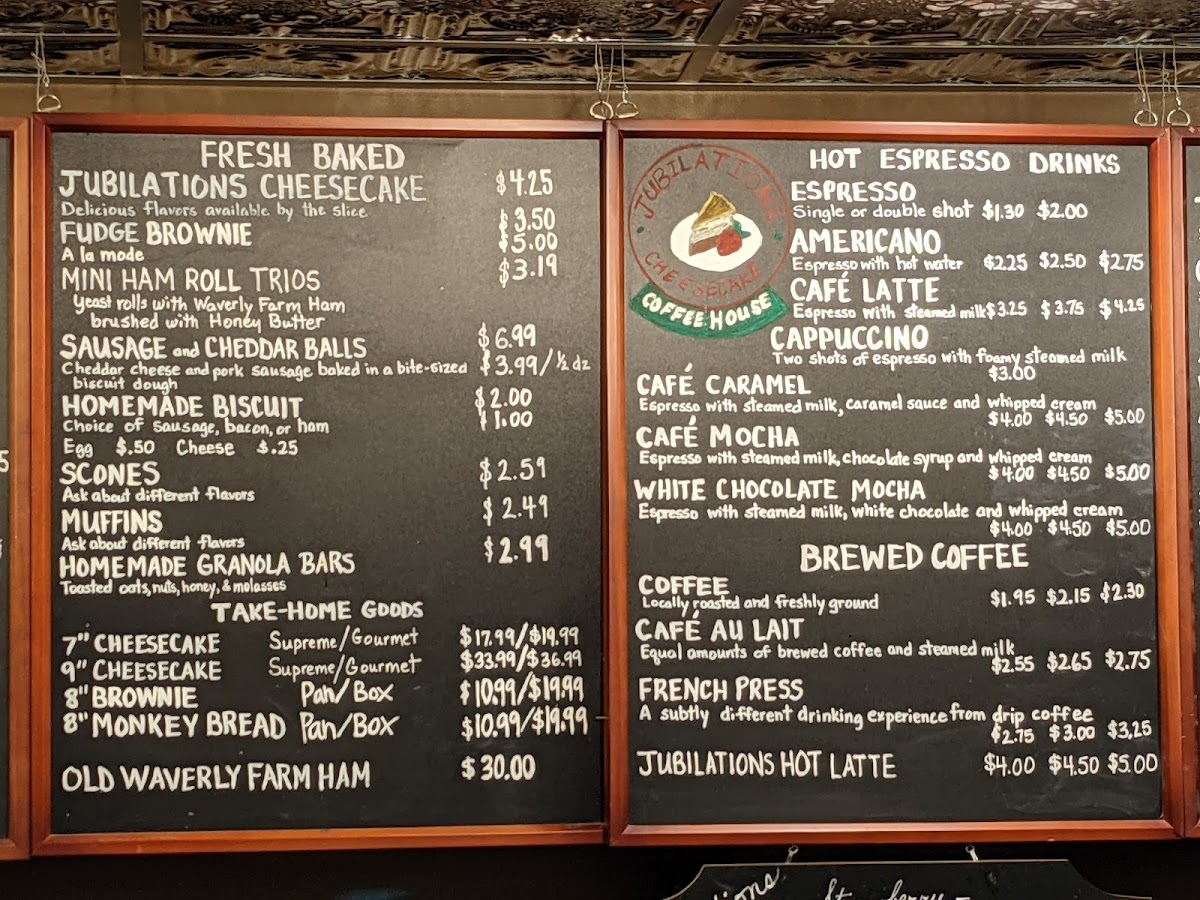 FRESH BAKED
JUBILATIONS CHEESECAKE $4.25
Delicious flavors available by the slice
FUDGE BROWNIE $3.50
A la mode $5.00
MINI HAM ROLL TRIOS $3.19
Yeast rolls with Waverly Farm Ham
brushed with Honey Butter
SAUSAGE and CHEDDAR BALLS $6.99
Cheddar cheese and pork sausage baked in a bite-sized $3.99/½ dz
biscuit dough
HOMEMADE BISCUIT $2.00
Choice of sausage, bacon, or ham $1.00
Egg $.50 Cheese $.25
SCONES $2.59
Ask about different flavors
MUFFINS $2.49
Ask about different flavors
HOMEMADE GRANOLA BARS $2.99
Toasted oats, nuts, honey, & molasses
TAKE-HOME GOODS
7" CHEESECAKE Supreme/Gourmet $17.99/$19.99
9" CHEESECAKE Supreme/Gourmet $33.99/$36.99
8" BROWNIE Pan/Box $10.99/$19.99
8" MONKEY BREAD Pan/Box $10.99/$19.99
OLD WAVERLY FARM HAM $30.00
JUBILATIONS
CHEESECAKE
COFFEE HOUSE
HOT ESPRESSO DRINKS
ESPRESSO
Single or double shot $1.30 $2.00
AMERICANO
Espresso with hot water $2.25 $2.50 $2.75
CAFÉ LATTE
Espresso with steamed milk $3.25 $3.75 $4.25
CAPPUCCINO
Two shots of espresso with foamy steamed milk
$3.00
CAFÉ CARAMEL
Espresso with steamed milk, caramel sauce and whipped cream
$4.00 $4.50 $5.00
CAFÉ MOCHA
Espresso with steamed milk, chocolate syrup and whipped cream
$4.00 $4.50 $5.00
WHITE CHOCOLATE MOCHA
Espresso with steamed milk, white chocolate and whipped cream
$4.00 $4.50 $5.00
BREWED COFFEE
COFFEE
Locally roasted and freshly ground $1.95 $2.15 $2.30
CAFÉ AU LAIT
Equal amounts of brewed coffee and steamed milk
$2.55 $2.65 $2.75
FRENCH PRESS
A subtly different drinking experience from drip coffee
$2.75 $3.00 $3.25
JUBILATIONS HOT LATTE $4.00 $4.50 $5.00